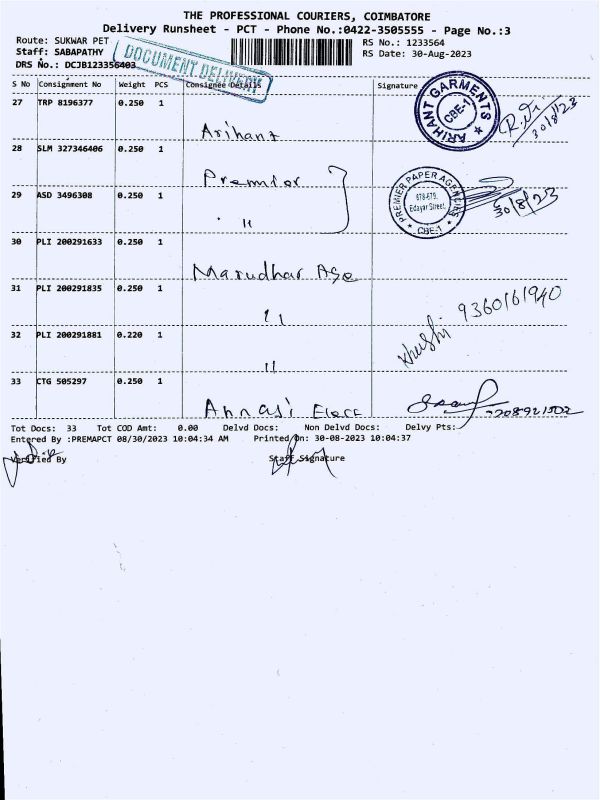 THE PROFESSIONAL COURIERS, COIMBATORE
Delivery Runsheet - PCT - Phone No.:0422-3505555 - Page No.:3
Route: SUKWAR PET
RS No.: 1233564
Staff: SABAPATHY
RS Date: 30-Aug-2023
DRS No.: DCJB123356403
DOCUMENT DELIVERY
S No Consignment No Weight PCS Consignee Details Signature
27 TRP 8196377 0.250 1
Arihant
ARIHANT GARMENTS
CBE-1
30/8/23
28 SLM 327346406 0.250 1
Premier
29 ASD 3496308 0.250 1
"
PREMIER PAPER AGENCIES
678-679,
Edayar Street,
CBE-1
30/8/23
30 PLI 200291633 0.250 1
Marudhar Age
31 PLI 200291835 0.250 1
"
Khushi 9360161940
32 PLI 200291881 0.220 1
"
33 CTG 505297 0.250 1
Annaji Elecc
Tot Docs: 33 Tot COD Amt: 0.00 Delvd Docs: Non Delvd Docs: Delvy Pts:
Entered By :PREMAPCT 08/30/2023 10:04:34 AM Printed On: 30-08-2023 10:04:37
Verified By
Staff Signature